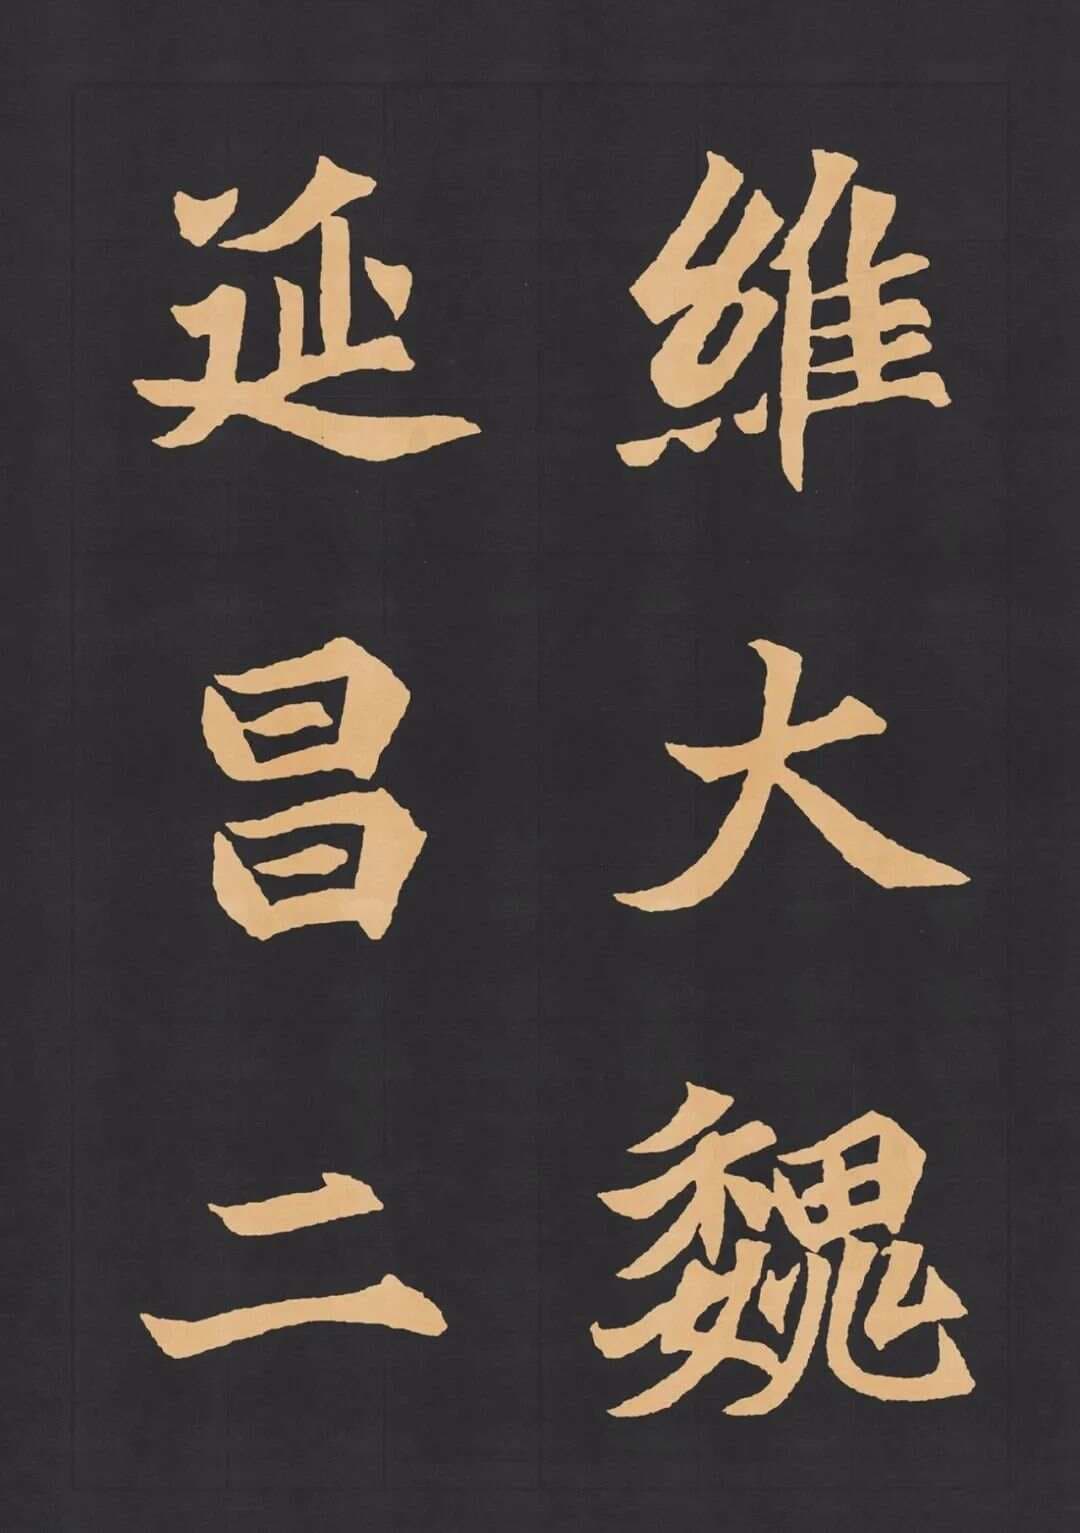 維大魏
延昌二